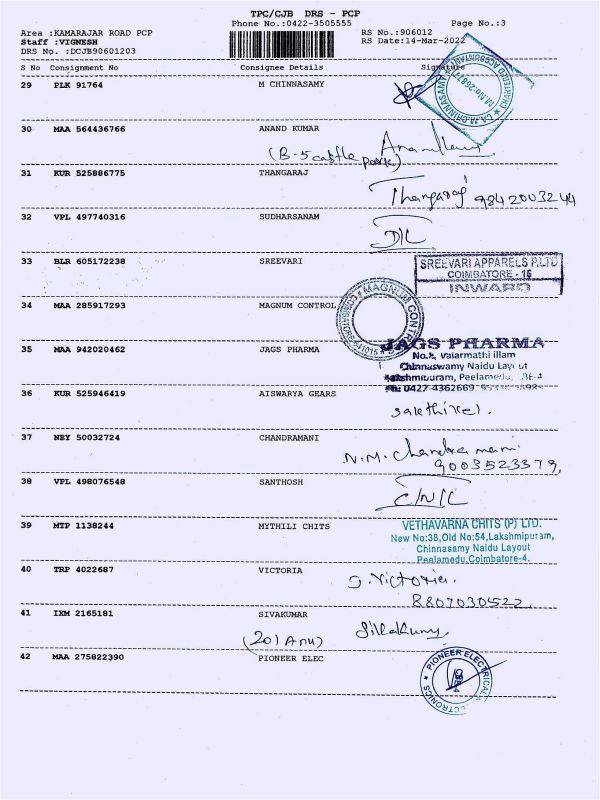 TPC/CJB DRS - PCP
Phone No.:0422-3505555
Page No.:3
Area :KAMARAJAR ROAD PCP
RS No.:906012
Staff :VIGNESH
RS Date:14-Mar-2022
DRS No. :DCJB90601203
S No Consignment No Consignee Details Signature
29 PLK 91764 M CHINNASAMY
CA.M.CHINNASWAMY
CHARTERED ACCOUNTANT
30 MAA 564436766 ANAND KUMAR
(B-5 castle park)
31 KUR 525886775 THANGARAJ
Thangaraj 9842003244
32 VPL 497740316 SUDHARSANAM
33 BLR 605172238 SREEVARI
SREEVARI APPARELS P.LTD
COIMBATORE - 15
INWARD
34 MAA 285917293 MAGNUM CONTROL
MAGNUM CONTR
35 MAA 942020462 JAGS PHARMA
JAGS PHARMA
Vaiarmathi illam
Chinnaswamy Naidu Layout
Lakshmipuram, Peelamedu, CBE-4
Ph: 0427-4362669
36 KUR 525946419 AISWARYA GEARS
Salethivel.
37 NEY 50032724 CHANDRAMANI
N.M. Chandramani
9003523379,
38 VPL 498076548 SANTHOSH
39 MTP 1138244 MYTHILI CHITS
VETHAVARNA CHITS (P) LTD.
New No:38,Old No:54,Lakshmipuram,
Chinnasamy Naidu Layout
Peelamedu,Coimbatore-4.
40 TRP 4022687 VICTORIA
J. Victoria.
8807030522
41 IXM 2165181 SIVAKUMAR
Sivakumy
42 MAA 275822390 PIONEER ELEC
PIONEER ELECTRICAL
ELECTRONICS